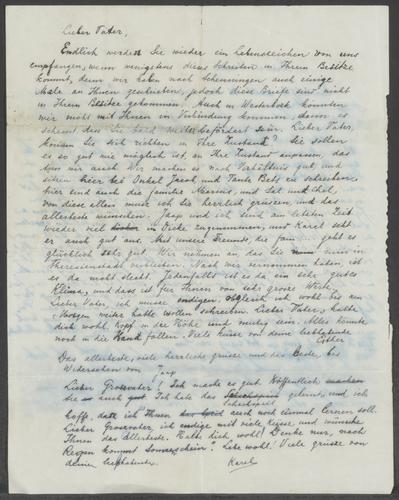 Lieber Vater,
Endlich werden Sie wieder ein Lebenszeichen von uns
empfangen, wenn wenigstens dieses Schreiben in Ihrem Besitze
kommt, denn wir haben nach Scheveningen auch einige
Male an Ihnen geschrieben, jedoch diese Briefe sind nicht
in Ihrem Besitze gekommen. Auch in Westerbork konnten
wir nicht mit Ihnen in Verbindung kommen, denn es
scheint dass Sie bald weiterbefördert sein. Lieber Vater,
können Sie sich richten in Ihre Zustand? Sie sollen
es so gut wie möglich ist, an Ihre Zustant anpassen, das
tuen wir auch. Wir machen es nach Verhältnis gut und
stehen hier bei Onkel Jacob und Tante Bets
hier sind auch die Familie und Sal und Chel,
von diese allen muss ich Sie herzlich grüssen, und das
allerbeste wünschen. Jaap und ich sind am letzten Zeit
wieder viel in Dicke zugenommen, und Karel geht
er auch gut aus. Mit unsere Freunde, die geht es
glücklich sehr gut. Wir nehmen an, das Sie nun in
Theresienstadt verblieben. Nach wir vernommen haben, ist
es da nicht slecht. Jedenfalls ist es da ein sehr gutes
Klima, und dass ist für Ihnen von sehr grosse Werte.
Lieber Vater, ich musse endigen, obgleich ich wohl bis am
Morgen weiter hatte wollen schreiben. Lieber Vater, halte
dich wohl, Kopf in der Höhe und mutig sein. Alles könnte
noch in die Hand fallen. Viele küsse von deine liebhabende
Esther
Das allerbeste, viele herzliche grüsse und das Beste, bis
Wiedersehen von Jaap
Lieber Grosvater! Ich mache es gut. Hoffentlich machen
Sie auch gut. Ich habe das Schachspiel gelernt, und ich
hoffe, dass ich Ihnen auch noch einmal lernen soll.
Lieber Grosvater, ich endige mit viele küsse und wünsche
Ihnen das allerbeste. Halte dich wohl! Denke nur, nach
Regen kommt Sonnenschein! Lebe wohl! Viele grüsse von
deinen liebhabenden Karel